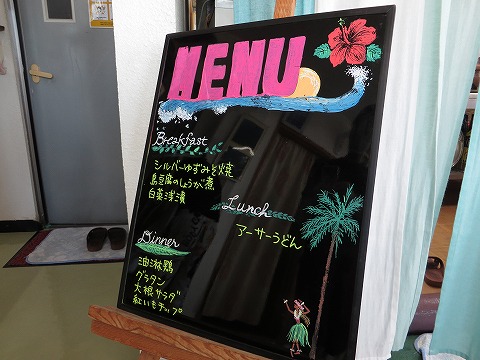 MENU
Breakfast
シルバーゆずみそ焼
島豆腐のしょうが煮
白菜浅漬
Lunch
アーサーうどん
Dinner
油淋鶏
グラタン
大根サラダ
紅いもチップ